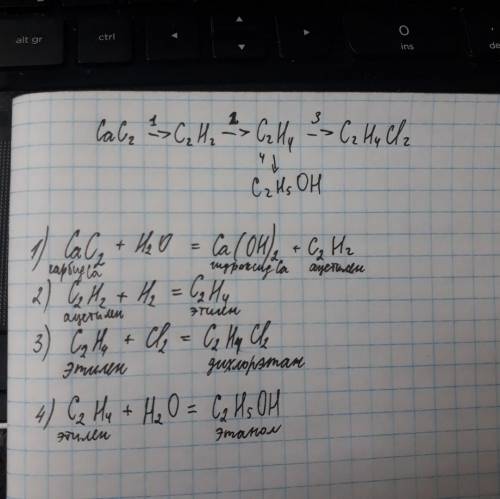 alt gr ctrl ◄ ▲ ▼ ► 0 ins
1 2 3
CaC₂ → C₂H₂ → C₂H₄ → C₂H₄Cl₂
4 ↓
C₂H₅OH
1) CaC₂ + H₂O = Ca(OH)₂ + C₂H₂
карбид Ca гидроксид Ca ацетилен
2) C₂H₂ + H₂ = C₂H₄
ацетилен этилен
3) C₂H₄ + Cl₂ = C₂H₄Cl₂
этилен дихлорэтан
4) C₂H₄ + H₂O = C₂H₅OH
этилен этанол